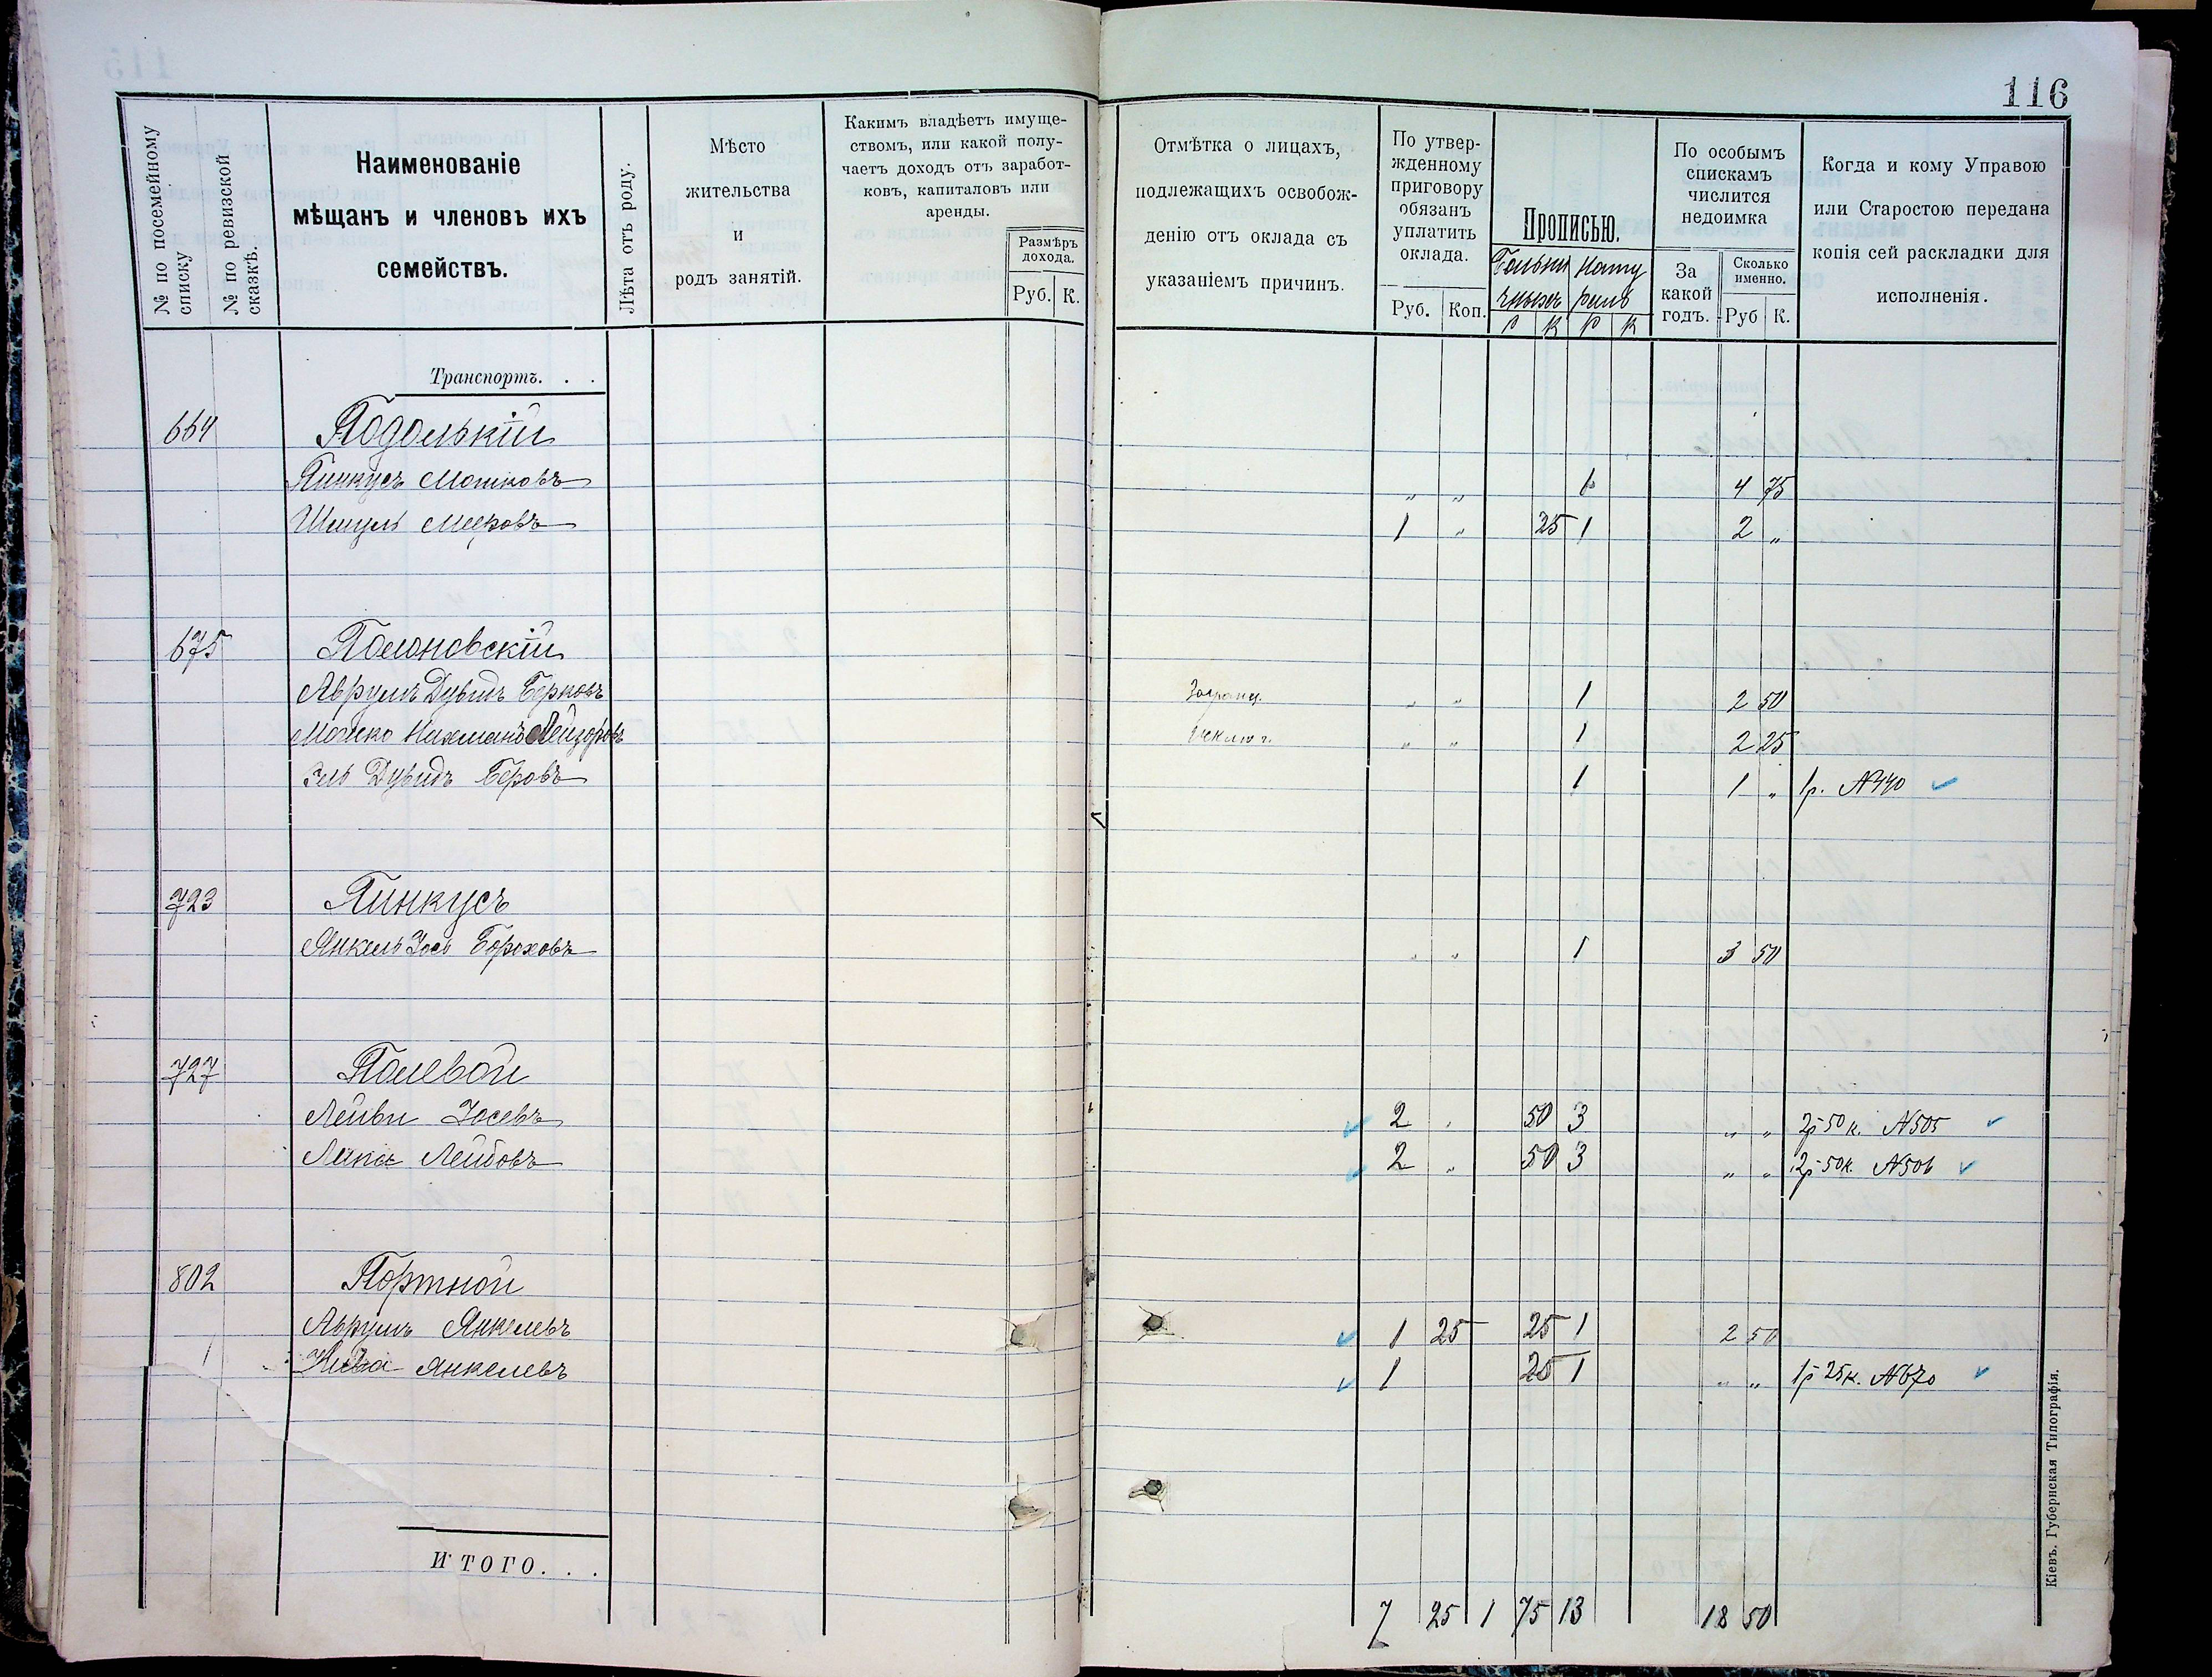 116
№ по посемейному списку
№ по ревизской сказкѣ.
Наименованіе
мѣщанъ и членовъ ихъ
семействъ.
Лѣта отъ роду.
Мѣсто
жительства
и
родъ занятій.
Какимъ владѣетъ имуще-
ствомъ, или какой полу-
чаетъ доходъ отъ заработ-
ковъ, капиталовъ или
аренды.
Размѣръ
дохода.
Руб. К.
Отмѣтка о лицахъ,
подлежащихъ освобож-
денію отъ оклада съ
указаніемъ причинъ.
По утвер-
жденному
приговору
обязанъ
уплатить
оклада.
Руб. Коп.
Прописью.
Больни Нату
чныхъ раль
Р К Р К
По особымъ
спискамъ
числится
недоимка
За
какой
годъ.
Сколько
именно.
Руб К.
Когда и кому Управою
или Старостою передана
копія сей раскладки для
исполненія.
Транспортъ. . .
664 Подолькій
Пинкусъ Мошковъ „ „ 1 4 75
Шмуль Мееровъ 1 „ 25 1 2 „
675 Полоновскій
Аврумъ Дувидъ Берковъ Заграниц. „ „ 1 2 50
Мошко Нахманъ Лейзоровъ Исключ. „ „ 1 2 25
Зель Дувидъ Беровъ 1 1 „ 1р. №440
723 Пинкусъ
Янкель Іось Бороховъ „ „ 1 3 50
727 Полевой
Лейви Іосевъ 2 „ 50 3 „ „ 2р 50 к. №505
Лейбовъ 2 „ 50 3 „ „ 2р 50к. №506
802 Портной
Аврумъ Янкелевъ 1 25 25 1 2 50
Янкелевъ 1 25 1 „ „ 1р 25к. №670
ИТОГО. . .
7 25 1 75 13 18 50
Кіевъ. Губернская Типографія.